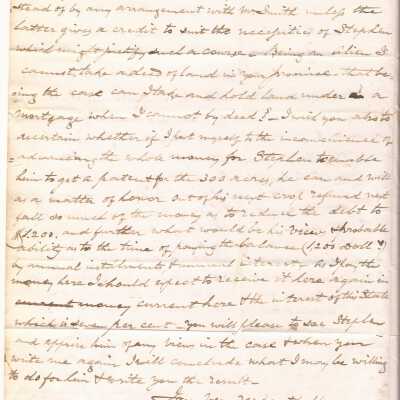 stead of by any arrangement with Mr Smith unless the
latter gives a credit to suit the necessities of Stephen
which might justify such a course - Being an alien I
cannot take a deed of land in your province. that be-
ing the case can I take and hold land under a
mortgage when I cannot by deed? - I wish you also to
ascertain whether if I put myself to the inconvenience of
advancing the whole money for Stephen to enable
him to get a patent for the 300 acres, he can and will
as a matter of honor out of his next crop refund next
fall so much of the money as to reduce the debt to
$1200, and further what would be his view & probable
ability as to the time of paying the balance (1200 Doll)
by annual instalments & annual interest as I pay the
money here I should expect to receive it here again in
current here & the interest of this State
which is seven per cent - You will please to see Stephen
and apprise him of my view in the case & when you
write me again I will conclude what I may be willing
to do for him & write you the result -